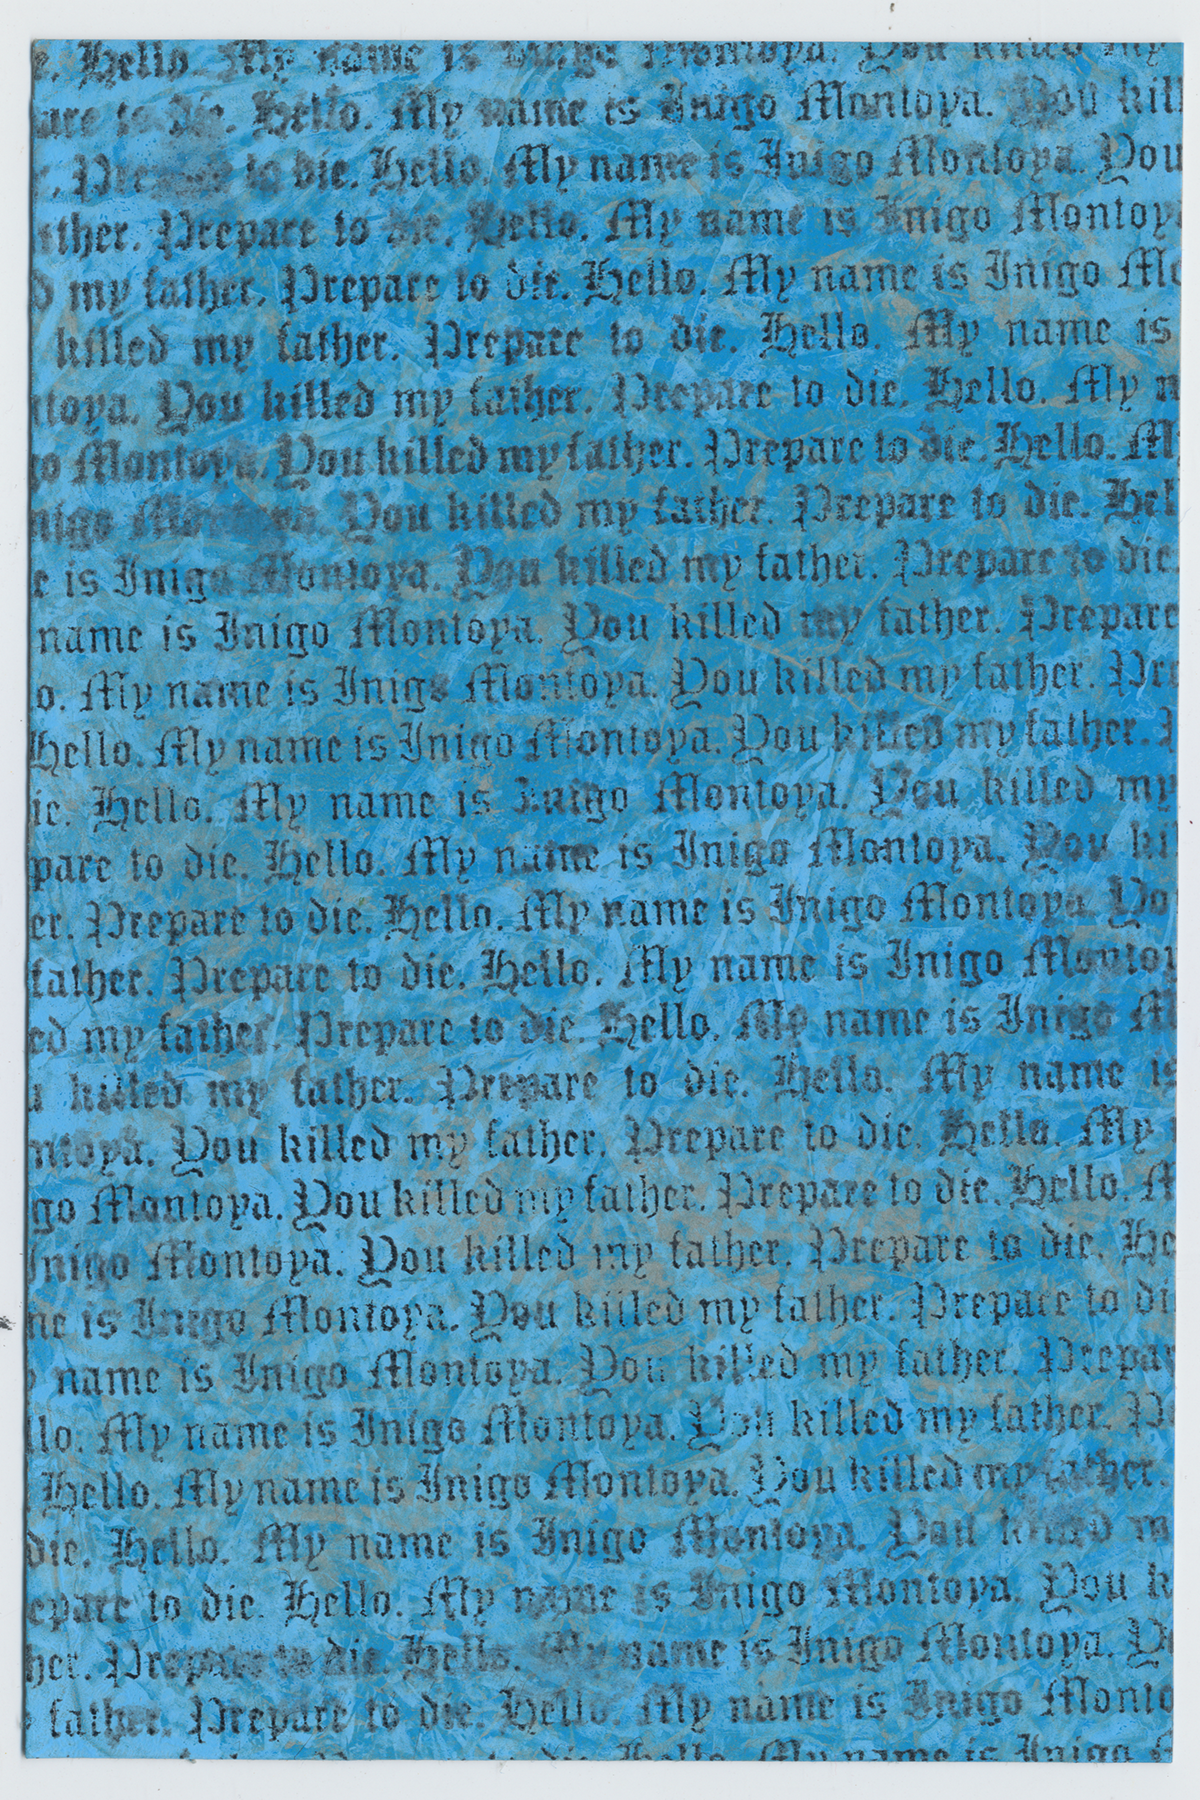 e. Hello. My name is Inigo Montoya. You killed my
are to die. Hello. My name is Inigo Montoya. You kil
. Prepare to die. Hello. My name is Inigo Montoya. You
ther. Prepare to die. Hello. My name is Inigo Montoy
d my father. Prepare to die. Hello. My name is Inigo Mo
killed my father. Prepare to die. Hello. My name is
toya. You killed my father. Prepare to die. Hello. My n
go Montoya. You killed my father. Prepare to die. Hello. M
nigo Montoya. You killed my father. Prepare to die. Hel
e is Inigo Montoya. You killed my father. Prepare to die.
name is Inigo Montoya. You killed my father. Prepare
o. My name is Inigo Montoya. You killed my father. Pre
Hello. My name is Inigo Montoya. You killed my father. P
ie. Hello. My name is Inigo Montoya. You killed my
pare to die. Hello. My name is Inigo Montoya. You ki
er. Prepare to die. Hello. My name is Inigo Montoya. Yo
father. Prepare to die. Hello. My name is Inigo Montoy
ed my father. Prepare to die. Hello. My name is Inigo M
u killed my father. Prepare to die. Hello. My name is
ntoya. You killed my father. Prepare to die. Hello. My
go Montoya. You killed my father. Prepare to die. Hello. M
Inigo Montoya. You killed my father. Prepare to die. He
ne is Inigo Montoya. You killed my father. Prepare to di
name is Inigo Montoya. You killed my father. Prepar
llo. My name is Inigo Montoya. You killed my father. P
Hello. My name is Inigo Montoya. You killed my father.
die. Hello. My name is Inigo Montoya. You killed m
epare to die. Hello. My name is Inigo Montoya. You k
her. Prepare to die. Hello. My name is Inigo Montoya. Yo
father. Prepare to die. Hello. My name is Inigo Monto
to die. Hello. My name is Inigo